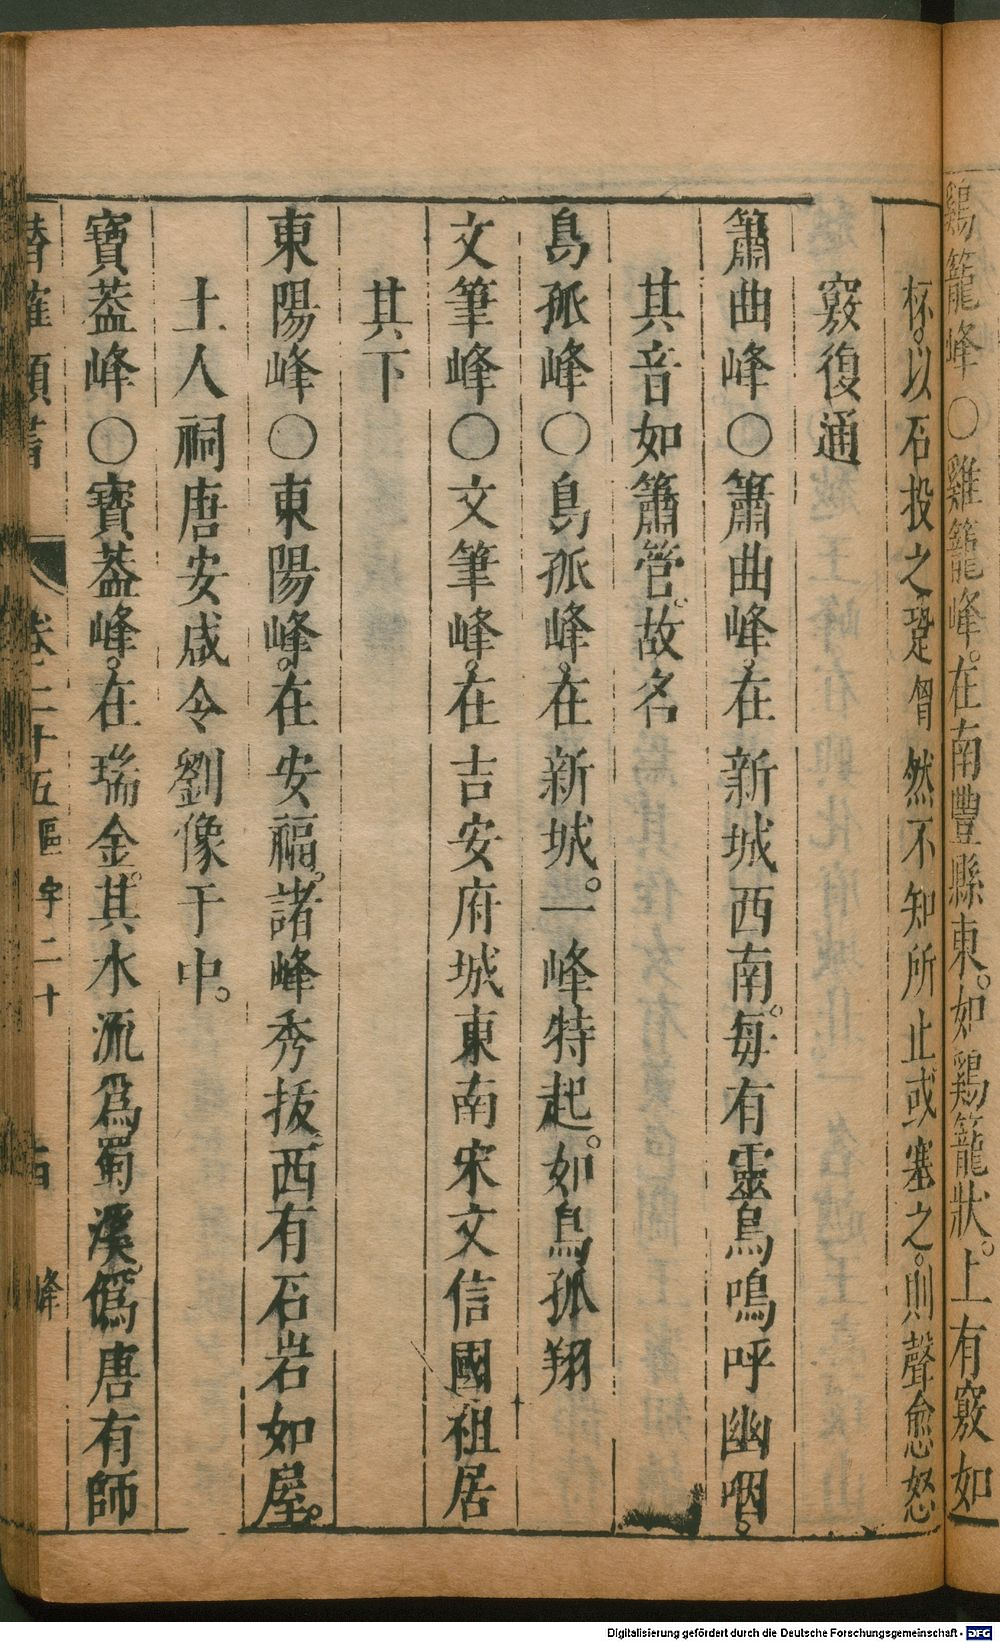 鷄籠峰○雞籠峰。在南豐縣東。如鷄籠狀。上有竅如
杯。以石投之鞺鞳然不知所止或塞之。則聲愈怒
竅復通
簫曲峰○簫曲峰。在新城西南。每有靈鳥鳴呼幽咽。
其音如簫管。故名
鳥孤峰○鳥孤峰。在新城。一峰特起。如鳥孤翔
文筆峰○文筆峰。在吉安府城東南宋文信國祖居
其下
東陽峰○東陽峰。在安福。諸峰秀拔西有石岩如屋。
土人祠唐安咸令劉像于中。
寶葢峰○寳葢峰。在瑞金。其水流爲蜀溪。僞唐有師
潛確類書 卷二十五 區宇二十 峰
Digitalisierung gefördert durch die Deutsche Forschungsgemeinschaft - DFG